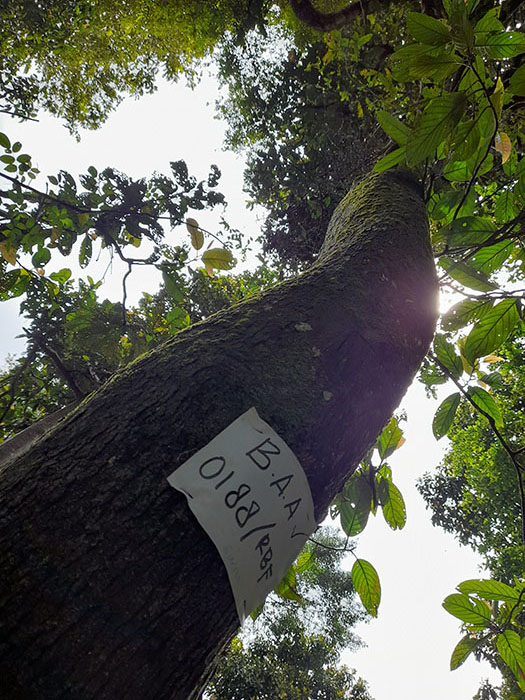 B.A.A
0188/RBF